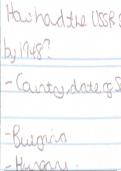 How had the USSR
by 1948?
- Country, date of
-
- Hungary